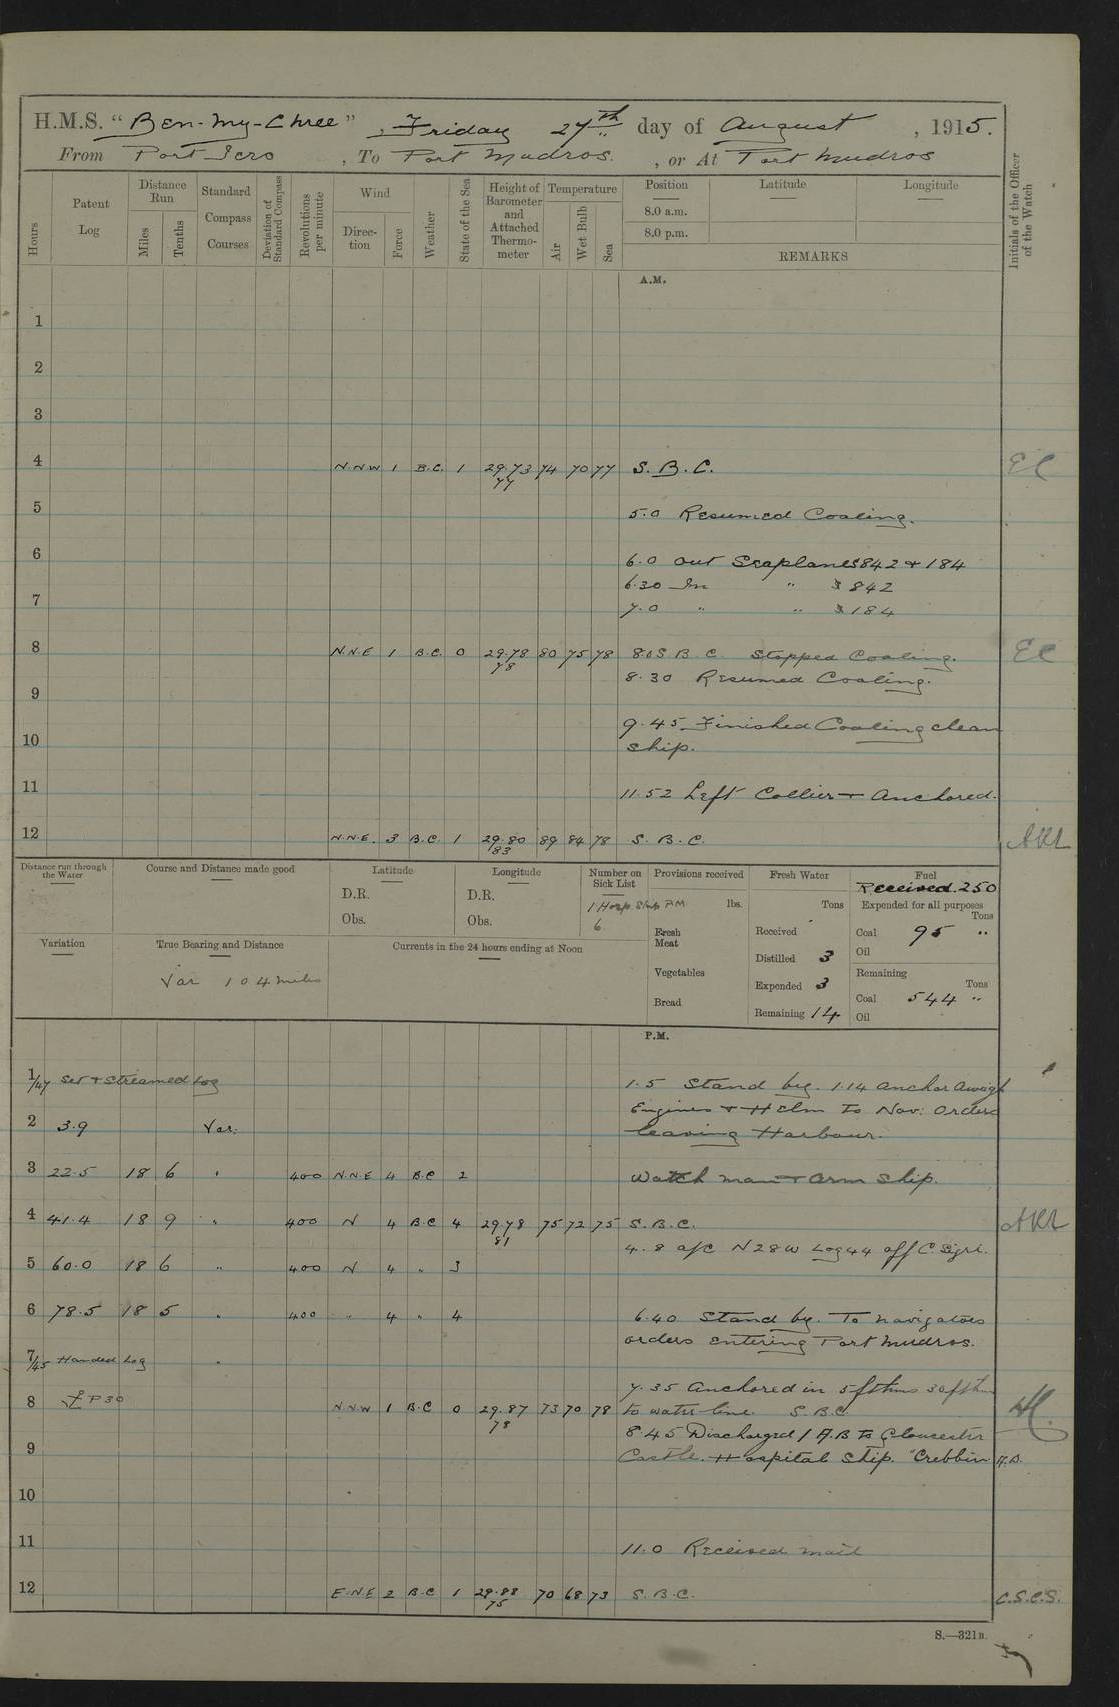 H.M.S. "Ben-my-Chree", Friday 27th day of August, 1915.
From Port Iero, To Port Mudros., or At Port Mudros
Hours
Patent Log
Distance Run
Miles
Tenths
Standard Compass Courses
Deviation of Standard Compass
Revolutions per minute
Wind
Direction
Force
Weather
State of the Sea
Height of Barometer and Attached Thermometer
Temperature
Air
Wet Bulb
Sea
Position
Latitude
Longitude
8.0 a.m.
8.0 p.m.
REMARKS
Initials of the Officer of the Watch
A.M.
1
2
3
4 N.N.W 1 B.C. 1 29.73 74 70 77 S.B.C. EC
77
5 5.0 Resumed Coaling.
6 6.0 out Seaplanes 842 + 184
6.30 In " 842
7 7.0 " " 184
8 N.N.E 1 B.C. 0 29.78 80 75 78 8.0 S B C. Stopped Coaling. EC
78
8.30 Resumed Coaling.
9
9.45 Finished Coaling clean
10 ship.
11 11.52 Left Collier + Anchored.
12 N.N.E. 3 B.C. 1 29.80 89 84 78 S.B.C.
83
Distance run through the Water
Course and Distance made good
Latitude
D.R.
Obs.
Longitude
D.R.
Obs.
Number on Sick List
1 Hosp Ship PM
6
Provisions received
lbs.
Fresh Meat
Vegetables
Bread
Fresh Water
Tons
Received
Distilled 3
Expended 3
Remaining 14
Fuel
Received. 250
Expended for all purposes
Tons
Coal 95 "
Oil
Remaining
Tons
Coal 544 "
Oil
Variation
True Bearing and Distance
Var 104 miles
Currents in the 24 hours ending at Noon
P.M.
1/47 Set + Streamed Log 1.5 Stand by. 1.14 anchor aweigh
Engines + Helm to Nav: Orders
2 3.9 Var: leaving Harbour.
3 22.5 18 6 " 400 N.N.E 4 B.C 2 Watch man + arm ship.
4 41.4 18 9 " 400 N 4 B.C 4 29.78 75 72 75 S.B.C.
81
4.8 a/c N28W Log 44 off C. Sigri.
5 60.0 18 6 " 400 N 4 " 3
6 78.5 18 5 " 400 " 4 " 4 6.40 Stand by. To navigators
orders entering Port Mudros.
7/45 Handed Log "
7.35 Anchored in 5 fthms 30 fthm
8 P 30 N.N.W 1 B.C 0 29.87 73 70 78 to water line S.B.C.
78
8.45 Discharged 1 A.B to Gloucester
9 Castle. Hospital Ship. "Crebbin A.B.
10
11 11.0 Received mail
12 E.N.E 2 B.C 1 29.88 70 68 73 S.B.C. C.S.C.S.
75
S.—321B.